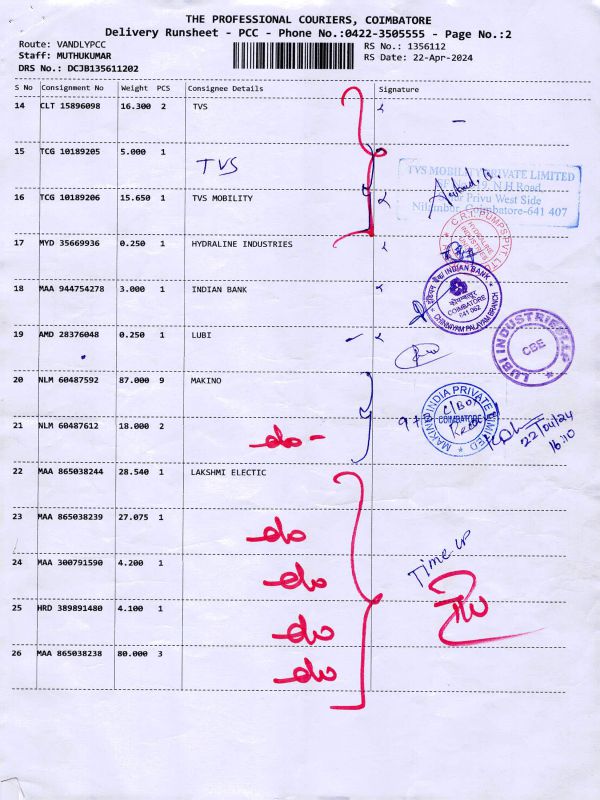 THE PROFESSIONAL COURIERS, COIMBATORE
Delivery Runsheet - PCC - Phone No.:0422-3505555 - Page No.:2
Route: VANDLYPCC
Staff: MUTHUKUMAR
DRS No.: DCJB135611202
RS No.: 1356112
RS Date: 22-Apr-2024
S No Consignment No Weight PCS Consignee Details Signature
14 CLT 15896098 16.300 2 TVS
15 TCG 10189205 5.000 1 TVS
TVS MOBILITY PRIVATE LIMITED
N.H Road
Privu West Side
Nilambur, Coimbatore-641 407
16 TCG 10189206 15.650 1 TVS MOBILITY
17 MYD 35669936 0.250 1 HYDRALINE INDUSTRIES
C.R.I. PUMPS PVT. LTD
HYDRALINE INDUSTRIES
18 MAA 944754278 3.000 1 INDIAN BANK
INDIAN BANK
COIMBATORE
641 062
CHINNIYAM PALAYAM BRANCH
19 AMD 28376048 0.250 1 LUBI
LUBI INDUSTRIES LLP
CBE
20 NLM 60487592 87.000 9 MAKINO
MAKINO INDIA PRIVATE LIMITED
COIMBATORE
9+2 C/Box
22/04/24
16:10
21 NLM 60487612 18.000 2 do-
22 MAA 865038244 28.540 1 LAKSHMI ELECTIC
23 MAA 865038239 27.075 1 do
24 MAA 300791590 4.200 1 do
Time UP
25 HRD 389891480 4.100 1 do
26 MAA 865038238 80.000 3 do